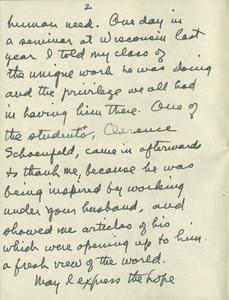 2
human need. One day in
a seminar at Wisconsin last
year I told my class of
the unique work he was doing
and the privilege we all had
in having him there. One of
the students, Clarence
Schoenfeld, came in afterwards
to thank me, because he was
being inspired by working
under your husband, and
showed me articles of his
which were opening up to him
a fresh view of the world.
May I express the hope